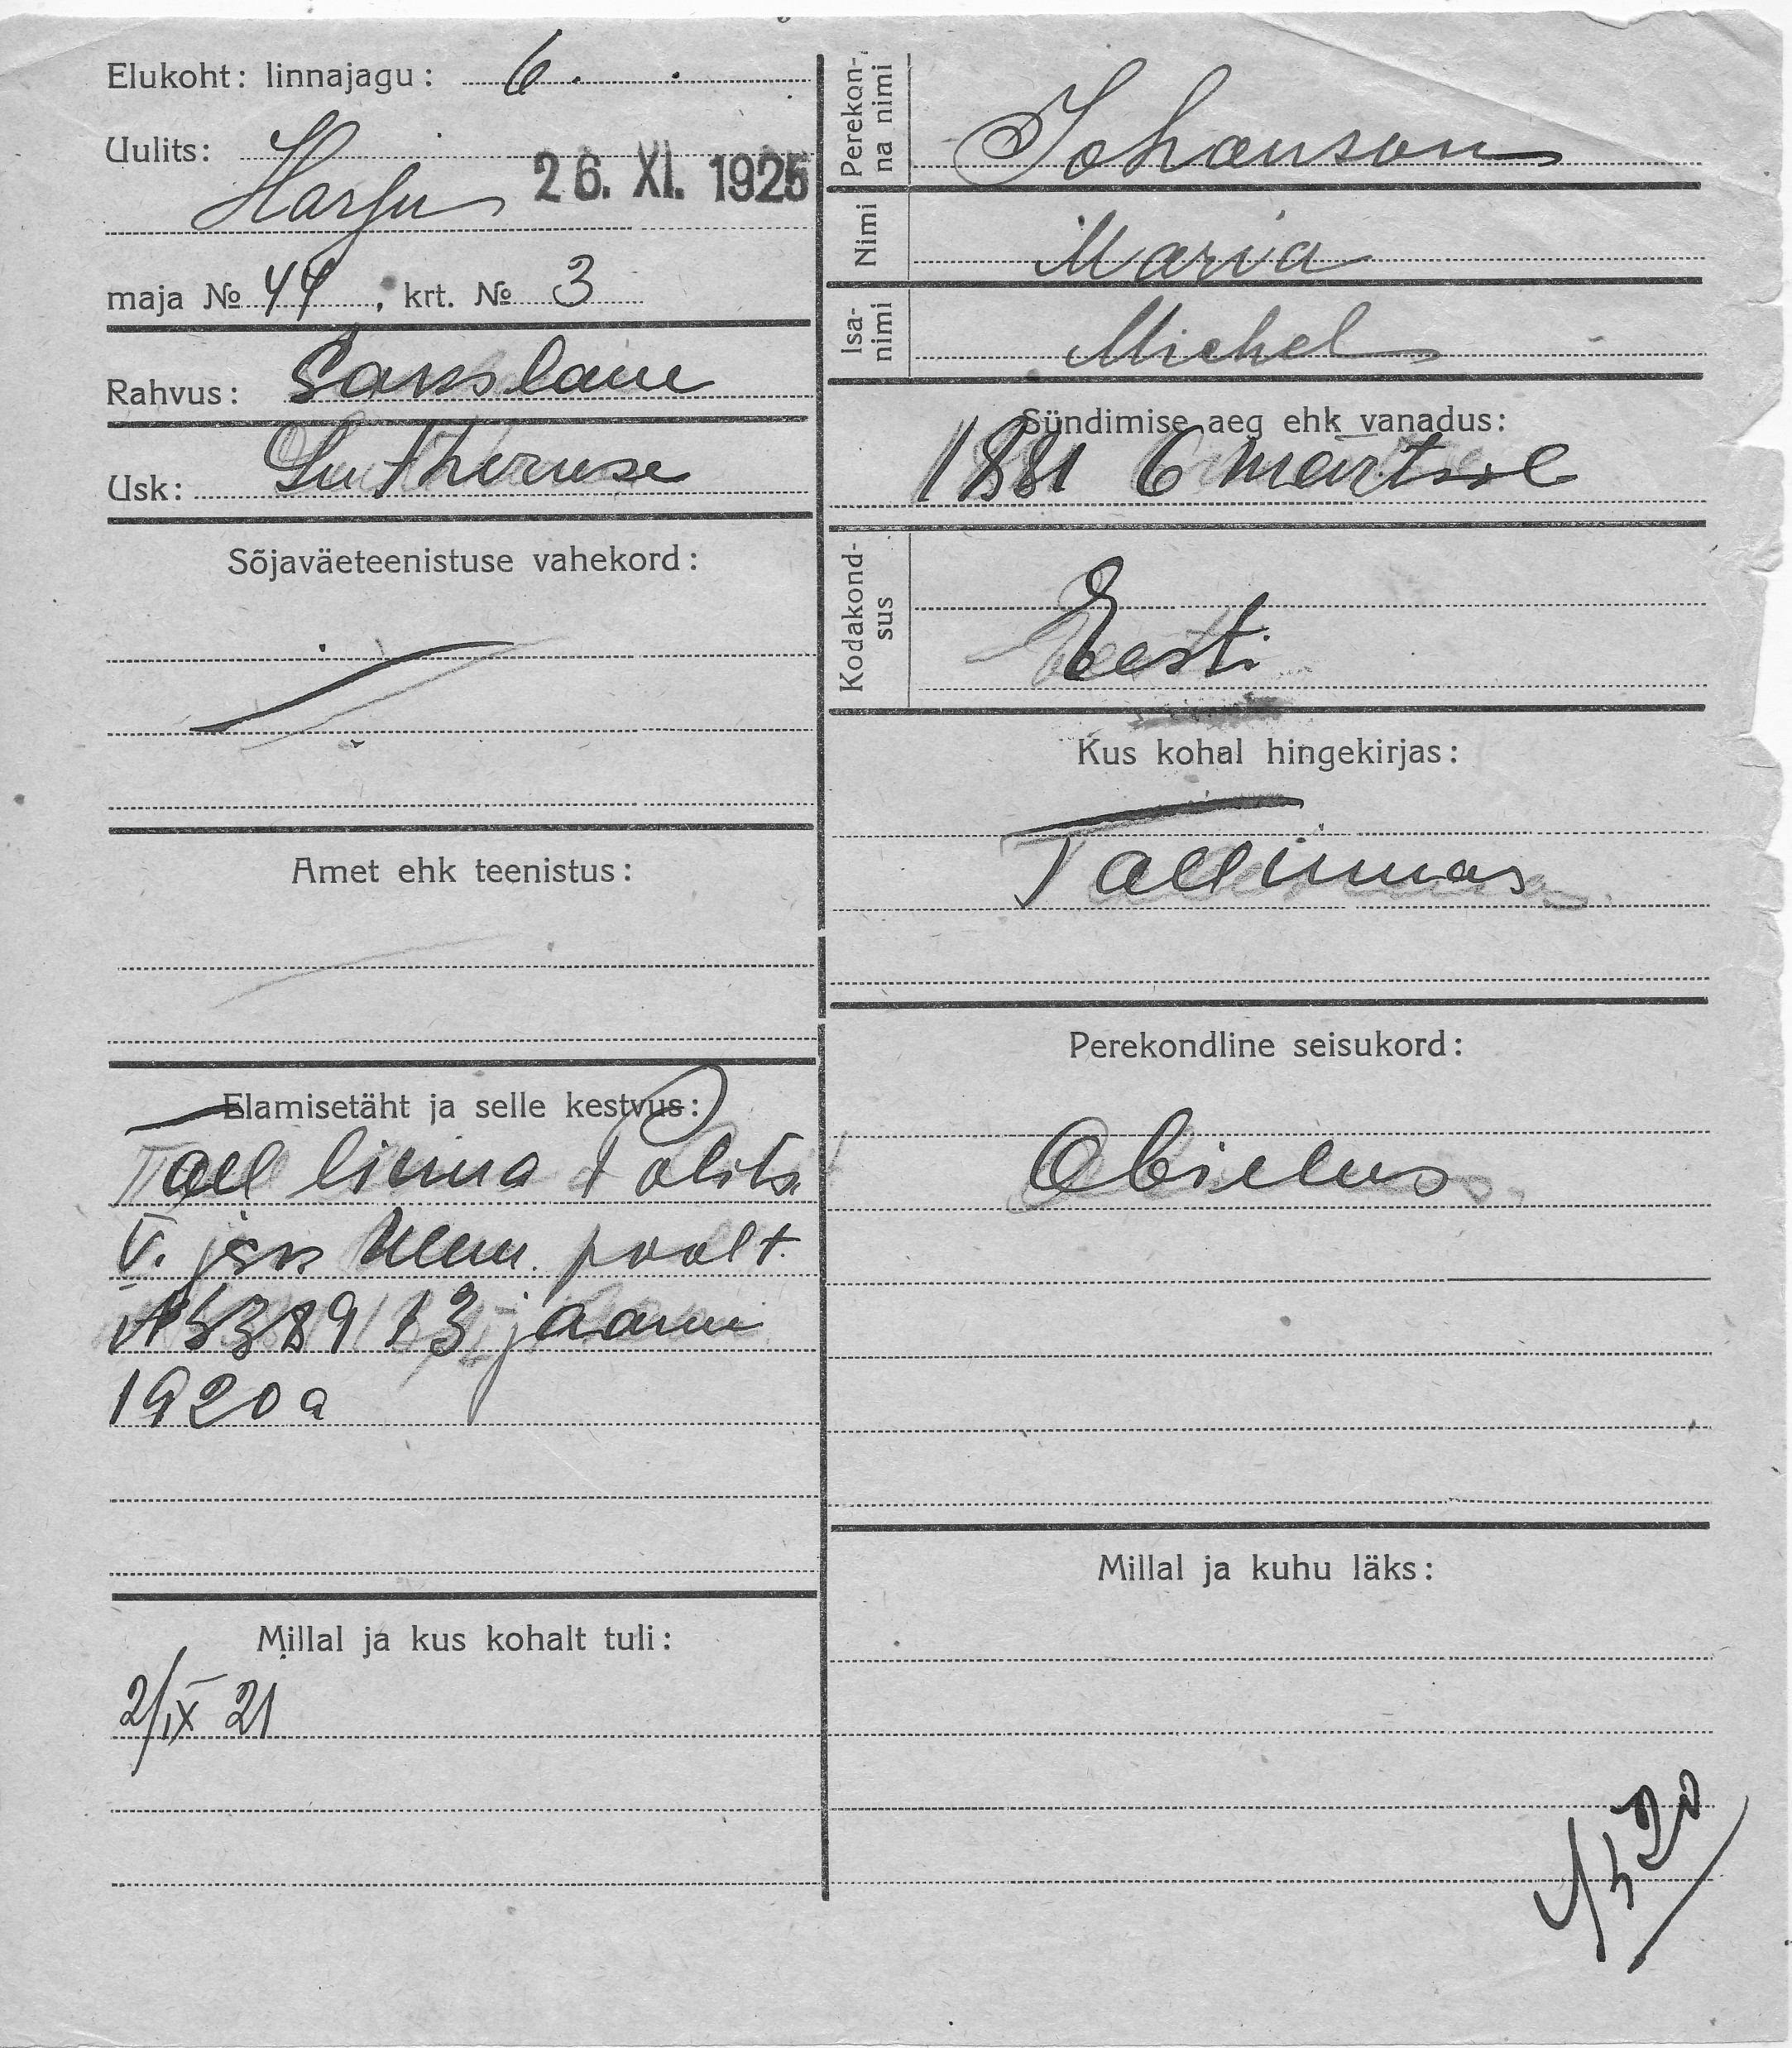 Elukoht: linnajagu: 6.
Uulits:
Harju 26. XI. 1925
maja № 44, krt. № 3
Rahvus: Sakslane
Usk: Lutheruse
Sõjaväeteenistuse vahekord:
Amet ehk teenistus:
Elamisetäht ja selle kestvus:
Tallinna Polits.
V. jsk Ülem. poolt
13 jaani
1920 a
Millal ja kus kohalt tuli:
2/IX 21
Perekonna nimi
Johanson
Nimi
Maria
Isanimi
Michel
Sündimise aeg ehk vanadus:
1881 6 martsil
Kodakondsus
Eesti
Kus kohal hingekirjas:
Tallinnas
Perekondline seisukord:
Abielus
Millal ja kuhu läks: